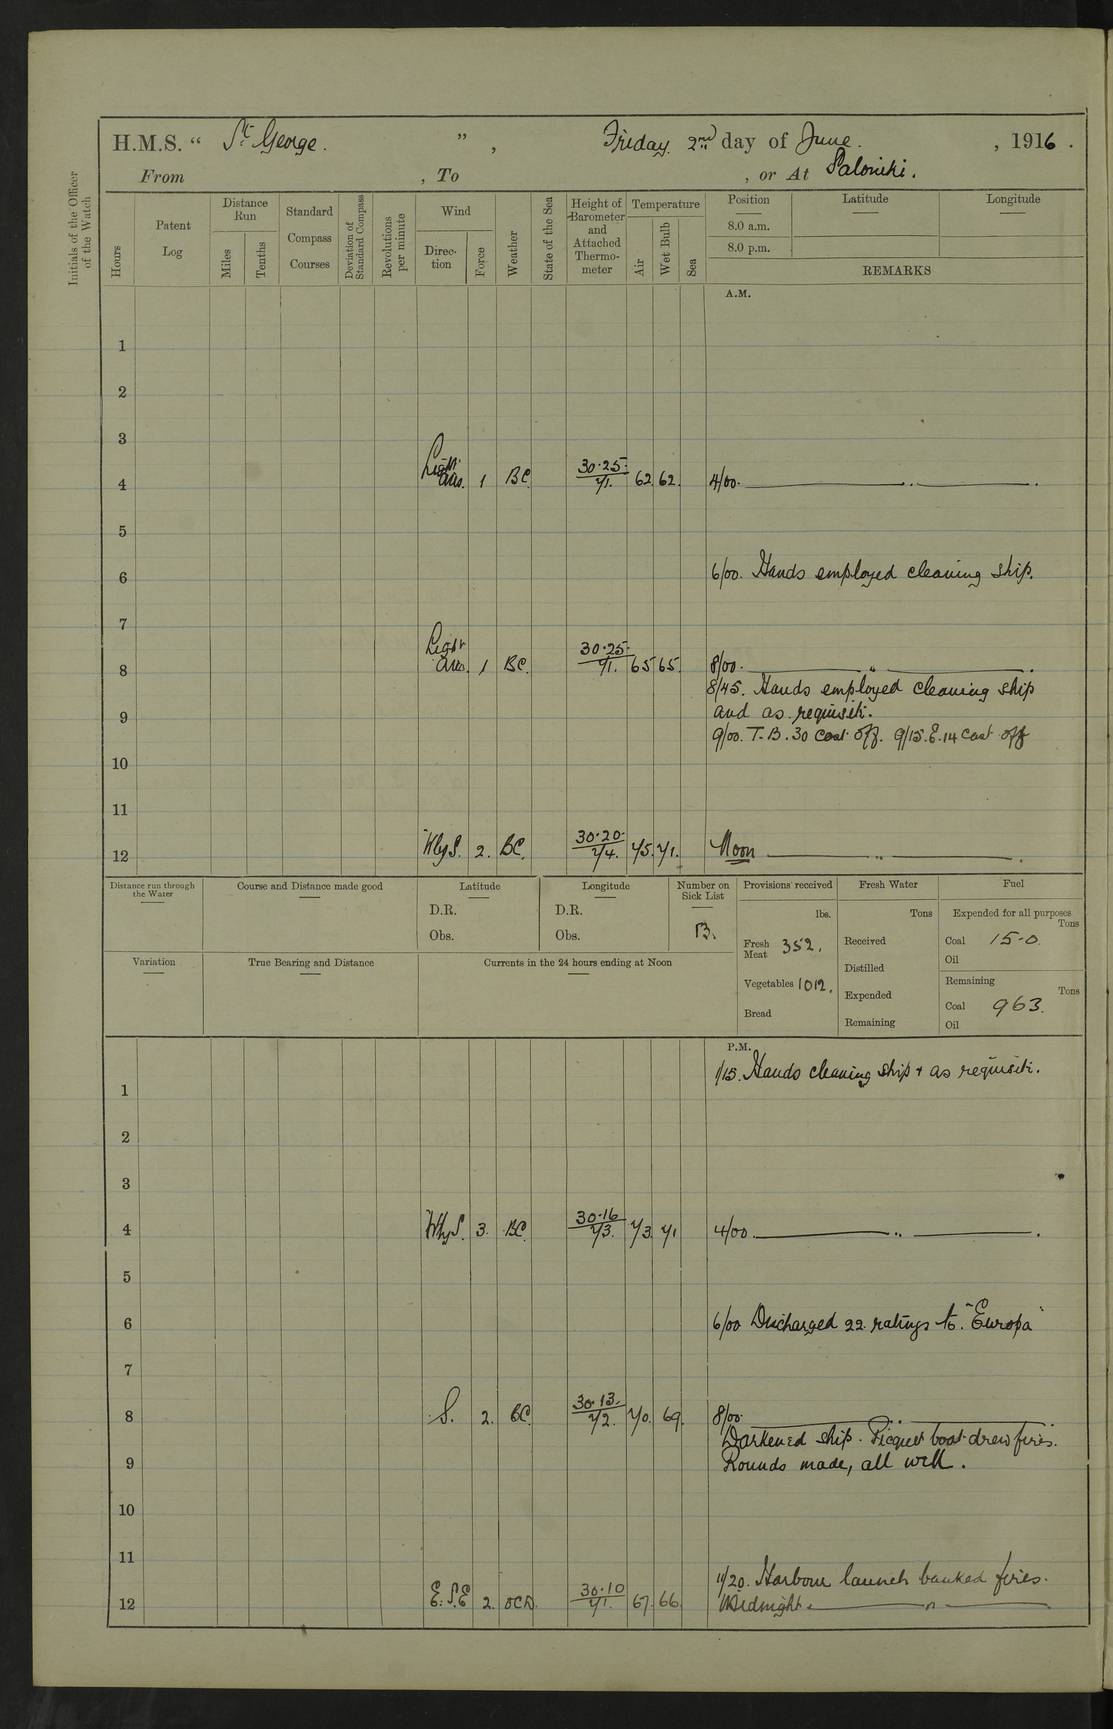 H.M.S. “ St George. ”, Friday 2nd day of June. , 1916.
From , To , or At Salonicki.
Initials of the Officer of the Watch
Hours
Patent Log
Distance Run
Miles
Tenths
Standard Compass Courses
Deviation of Standard Compass
Revolutions per minute
Wind
Direction
Force
Weather
State of the Sea
Height of Barometer and Attached Thermometer
Temperature
Air
Wet Bulb
Sea
Position Latitude Longitude
8.0 a.m.
8.0 p.m.
REMARKS
A.M.
1
2
3
4 Light airs. 1 BC. 30.25. 71. 62 62. 4/00. ——— " ———.
5
6 6/00. Hands employed cleaning ship.
7
8 Light airs. 1 BC. 30.25. 71. 65 65. 8/00. ——— " ———.
8/45. Hands employed cleaning ship
9 and as requisite.
9/00. T.B. 30 cast off. 9/15. E.14 cast off
10
11
12 WbyS. 2. BC. 30.20. 74. 75. 71. Noon ——— " ———.
Distance run through the Water
Course and Distance made good
Latitude
D.R.
Obs.
Longitude
D.R.
Obs.
Number on Sick List
13.
Provisions received
lbs.
Fresh Meat 352.
Vegetables 1012.
Bread
Fresh Water
Tons
Received
Distilled
Expended
Remaining
Fuel
Expended for all purposes
Tons
Coal 15-0.
Oil
Remaining
Tons
Coal 963.
Oil
Variation
True Bearing and Distance
Currents in the 24 hours ending at Noon
P.M.
1/15. Hands cleaning ship + as requisite.
1
2
3
4 WbyS. 3. BC. 30.16 73. 73. 71 4/00. ——— " ———.
5
6 6/00 Discharged 22 ratings to "Europa"
7
8 S. 2. BC. 30.13. 72. 70. 69. 8/00. ——— " ———.
Darkened ship. Picquet boat drew fires.
9 Rounds made, all well.
10
11
11/20. Harbour launch banked fires.
12 E.S.E 2. OCD. 30.10 71. 67. 66. Midnight. ——— " ———